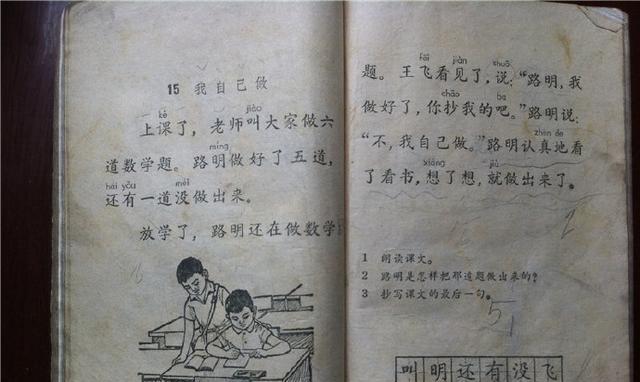 15 我自己做
kè jiào
上课了，老师叫大家做六
míng
道数学题。路明做好了五道，
hái yǒu méi
还有一道没做出来。
放学了，路明还在做数学
fēi jiàn shuō
题。王飞看见了，说：“路明，我
chāo ba
做好了，你抄我的吧。”路明说：
zhēn de
“不，我自己做。”路明认真地看
xiǎng jiù
了看书，想了想，就做出来了。
1 朗读课文。
2 路明是怎样把那道题做出来的？
3 抄写课文的最后一句。
叫明还有没飞